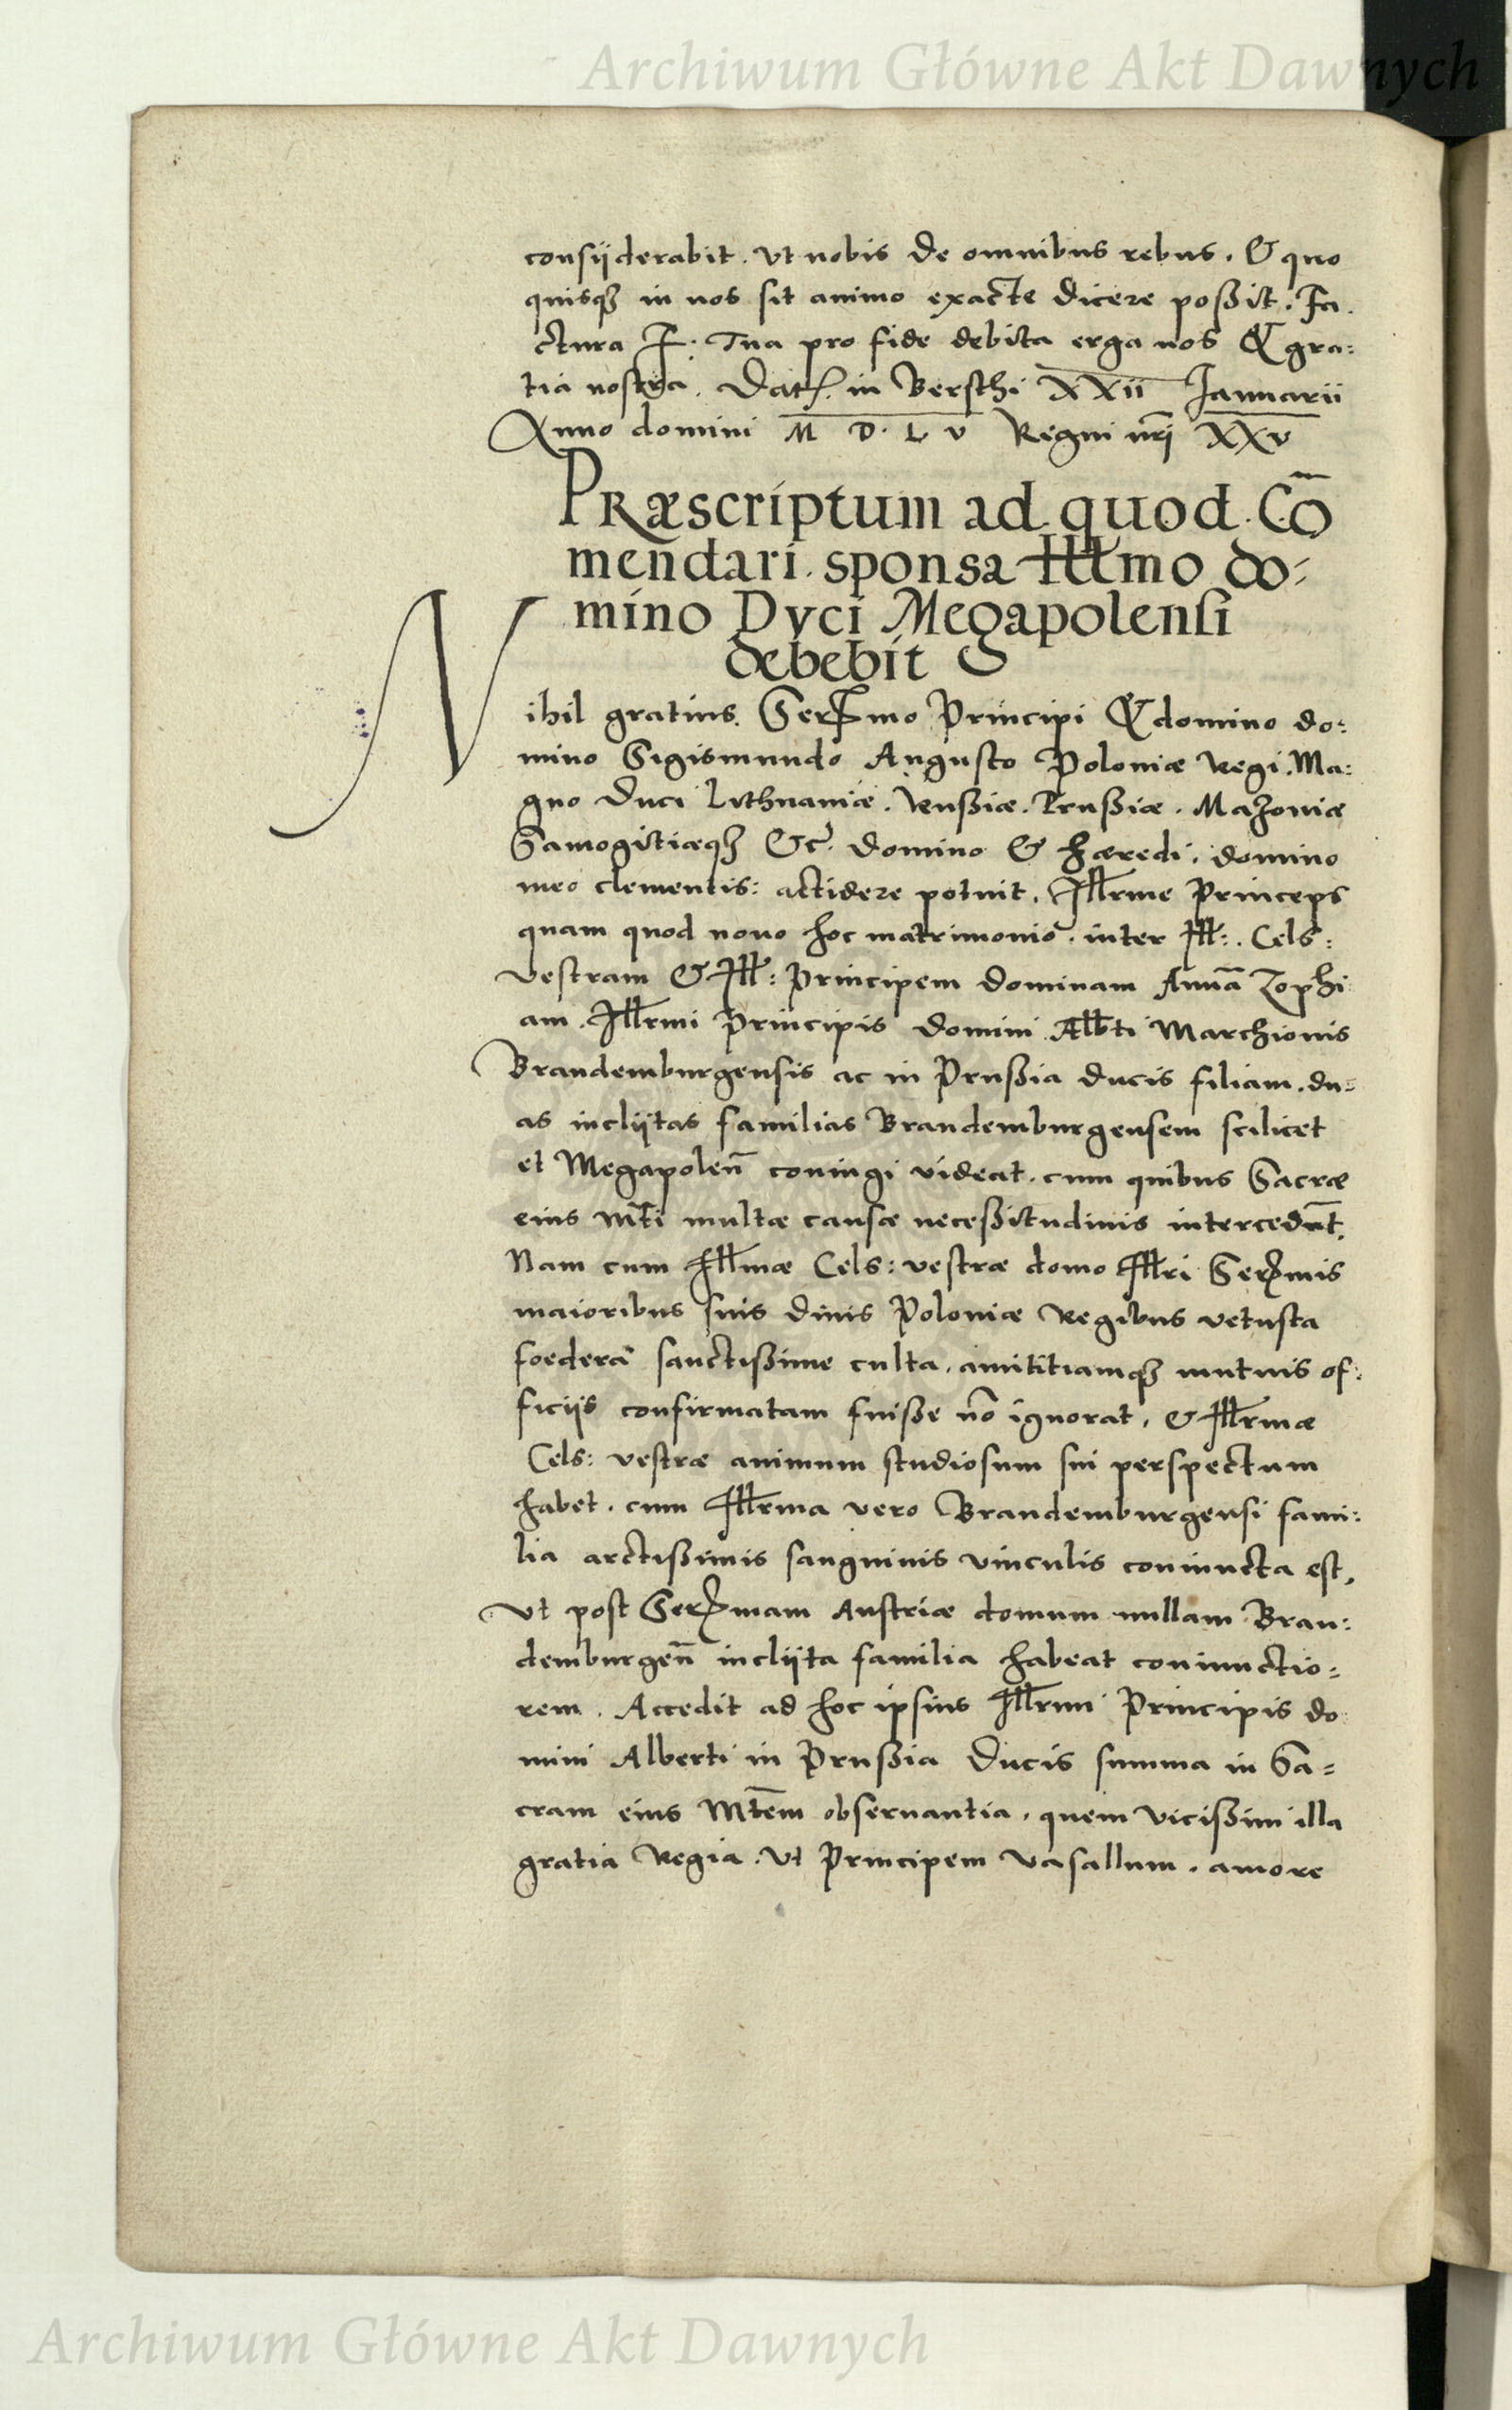 Archiwum Główne Akt Dawnych
consÿderabit. Vt nobis de omnibus rebus, & quo
quisqꝫ in nos sit animo exacte dicere poßit. Fa.
ctura F: Tua pro fide debita erga nos & gra:
tia nostra. Dat. in Berschi XXII Januarii
Anno domini M D. L V Regni nrĩ XXV
PRæscriptum ad quod Cõ
mendari sponsa Illmo do:
mino Dvci Megapolensi
debebit
Nihil gratius Serᵐᵒ Principi & domino do:
mino Sigismundo Augusto Poloniæ Regi. Ma:
gno Duci Lithuaniæ. Rußiæ. Prußiæ. Mazoniæ
Samogitiæqꝫ &c. domino & hæredi. domino
meo clementis: accidere potuit. Illrme Princeps
quam quod nouo hoc matrimonio. inter Ill:. Cels:
vestram & Ill: Principem dominam Annã Zophi
am. Illrmi Principis domini Albti Marchionis
Brandemburgensis ac in Prußia ducis filiam. du:
as inclÿtas familias Brandemburgensem scilicet
et Megapoleñ coniungi videat. cum quibus Sacræ
eius Mti multæ causæ neceßitudinis intercedūt.
Nam cum Illmæ Cels: vestræ domo Illri Serᵐis
maioribus suis diuis Poloniæ Regibus vetusta
foedera sanctißime culta. amicitiamqꝫ mutuis of:
ficiis confirmatam fuiße nõ ignorat. & Illrmæ
Cels: vestræ animum studiosum sui perspectum
habet. cum Illrma vero Brandemburgensi fami:
lia arctißimis sanguinis vinculis coniuncta est,
Vt post Serᵐam Austriæ domum nullam Bran:
demburgeñ inclÿta familia habeat coniunctio:
rem. Accedit ad hoc ipsius Illrmi Principis do
mini Alberti in Prußia Ducis summa in Sa:
cram eius Mtem obseruantia. quem vicißim illa
gratia Regia. Vt Principem Vasallum. amore
Archiwum Główne Akt Dawnych